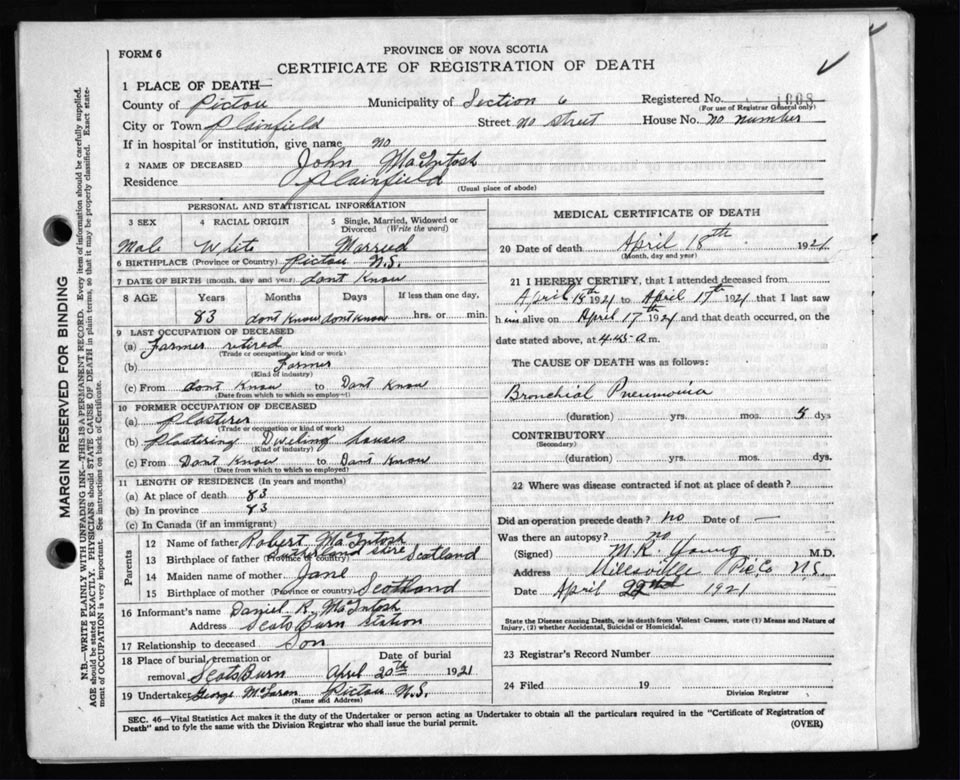 FORM 6
PROVINCE OF NOVA SCOTIA
CERTIFICATE OF REGISTRATION OF DEATH
1 PLACE OF DEATH—
County of Pictou Municipality of Section 6 Registered No. 1008
(For use of Registrar General only)
City or Town Plainfield Street no street House No. no number
If in hospital or institution, give name no
2 NAME OF DECEASED John MacIntosh
Residence Plainfield
(Usual place of abode)
PERSONAL AND STATISTICAL INFORMATION
3 SEX 4 RACIAL ORIGIN 5 Single, Married, Widowed or Divorced (Write the word)
Male White Married
6 BIRTHPLACE (Province or Country) Pictou N.S.
7 DATE OF BIRTH (month, day and year) dont Know
8 AGE Years Months Days If less than one day,
83 dont Know dont know hrs. or min.
9 LAST OCCUPATION OF DECEASED
(a) Farmer retired
(Trade or occupation or kind or work)
(b) Farmer
(Kind of industry)
(c) From dont Know to Dont Know
(Date from which to which so employed)
10 FORMER OCCUPATION OF DECEASED
(a) plasterer
(Trade or occupation or kind of work)
(b) plastering Dweling houses
(Kind of industry)
(c) From Dont Know to Dont Know
(Date from which to which so employed)
11 LENGTH OF RESIDENCE (In years and months)
(a) At place of death 83
(b) In province 83
(c) In Canada (if an immigrant)
Parents
12 Name of father Robert MacIntosh
13 Birthplace of father (Province or country) Sutherland shire Scotland
14 Maiden name of mother Jane
15 Birthplace of mother (Province or country) Scotland
16 Informant's name Daniel R. MacIntosh
Address Scots Burn Station
17 Relationship to deceased Son
18 Place of burial, cremation or removal Scots Burn Date of burial April 20th 1921
19 Undertaker George McLaren Pictou N.S.
(Name and Address)
MEDICAL CERTIFICATE OF DEATH
20 Date of death April 18th 1921
(Month, day and year)
21 I HEREBY CERTIFY, that I attended deceased from
April 1921 to April 17th 1921 that I last saw
him alive on April 17th 1921 and that death occurred, on the
date stated above, at 4.45 a m.
The CAUSE OF DEATH was as follows:
Bronchial Pneumonia
(duration) yrs. mos. 5 dys
CONTRIBUTORY
(Secondary)
(duration) yrs. mos. dys.
22 Where was disease contracted if not at place of death?
Did an operation precede death? no Date of —
Was there an autopsy? no
(Signed) M.R. Young M.D.
Address Millsville Pic. Co N.S.
Date April 22nd 1921
State the Disease causing Death, or in death from Violent Causes, state (1) Means and Nature of
Injury, (2) whether Accidental, Suicidal or Homicidal.
23 Registrar's Record Number
24 Filed 19
Division Registrar
SEC. 46—Vital Statistics Act makes it the duty of the Undertaker or person acting as Undertaker to obtain all the particulars required in the "Certificate of Registration of
Death" and to fyle the same with the Division Registrar who shall issue the burial permit.
(OVER)
MARGIN RESERVED FOR BINDING
N.B.—WRITE PLAINLY WITH UNFADING INK—THIS IS A PERMANENT RECORD. Every item of information should be carefully supplied.
AGE should be stated EXACTLY. PHYSICIANS should STATE CAUSE OF DEATH in plain terms, so that it may be properly classified. Exact state-
ment of OCCUPATION is very important. See instructions on back of Certificate.